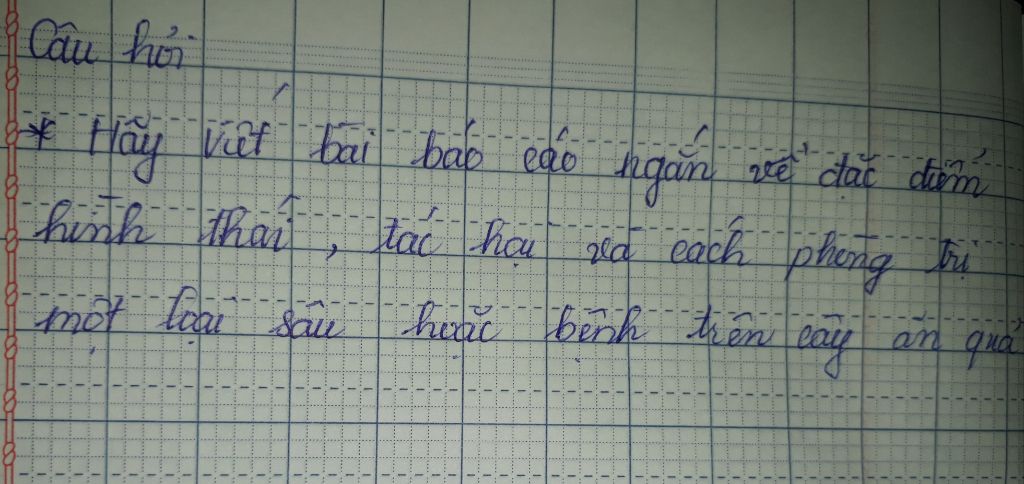 Câu hỏi
* Hãy viết bài báo cáo ngắn về đặc điểm
hình thái, tác hại và cách phòng trị
một loại sâu hoặc bệnh trên cây ăn quả